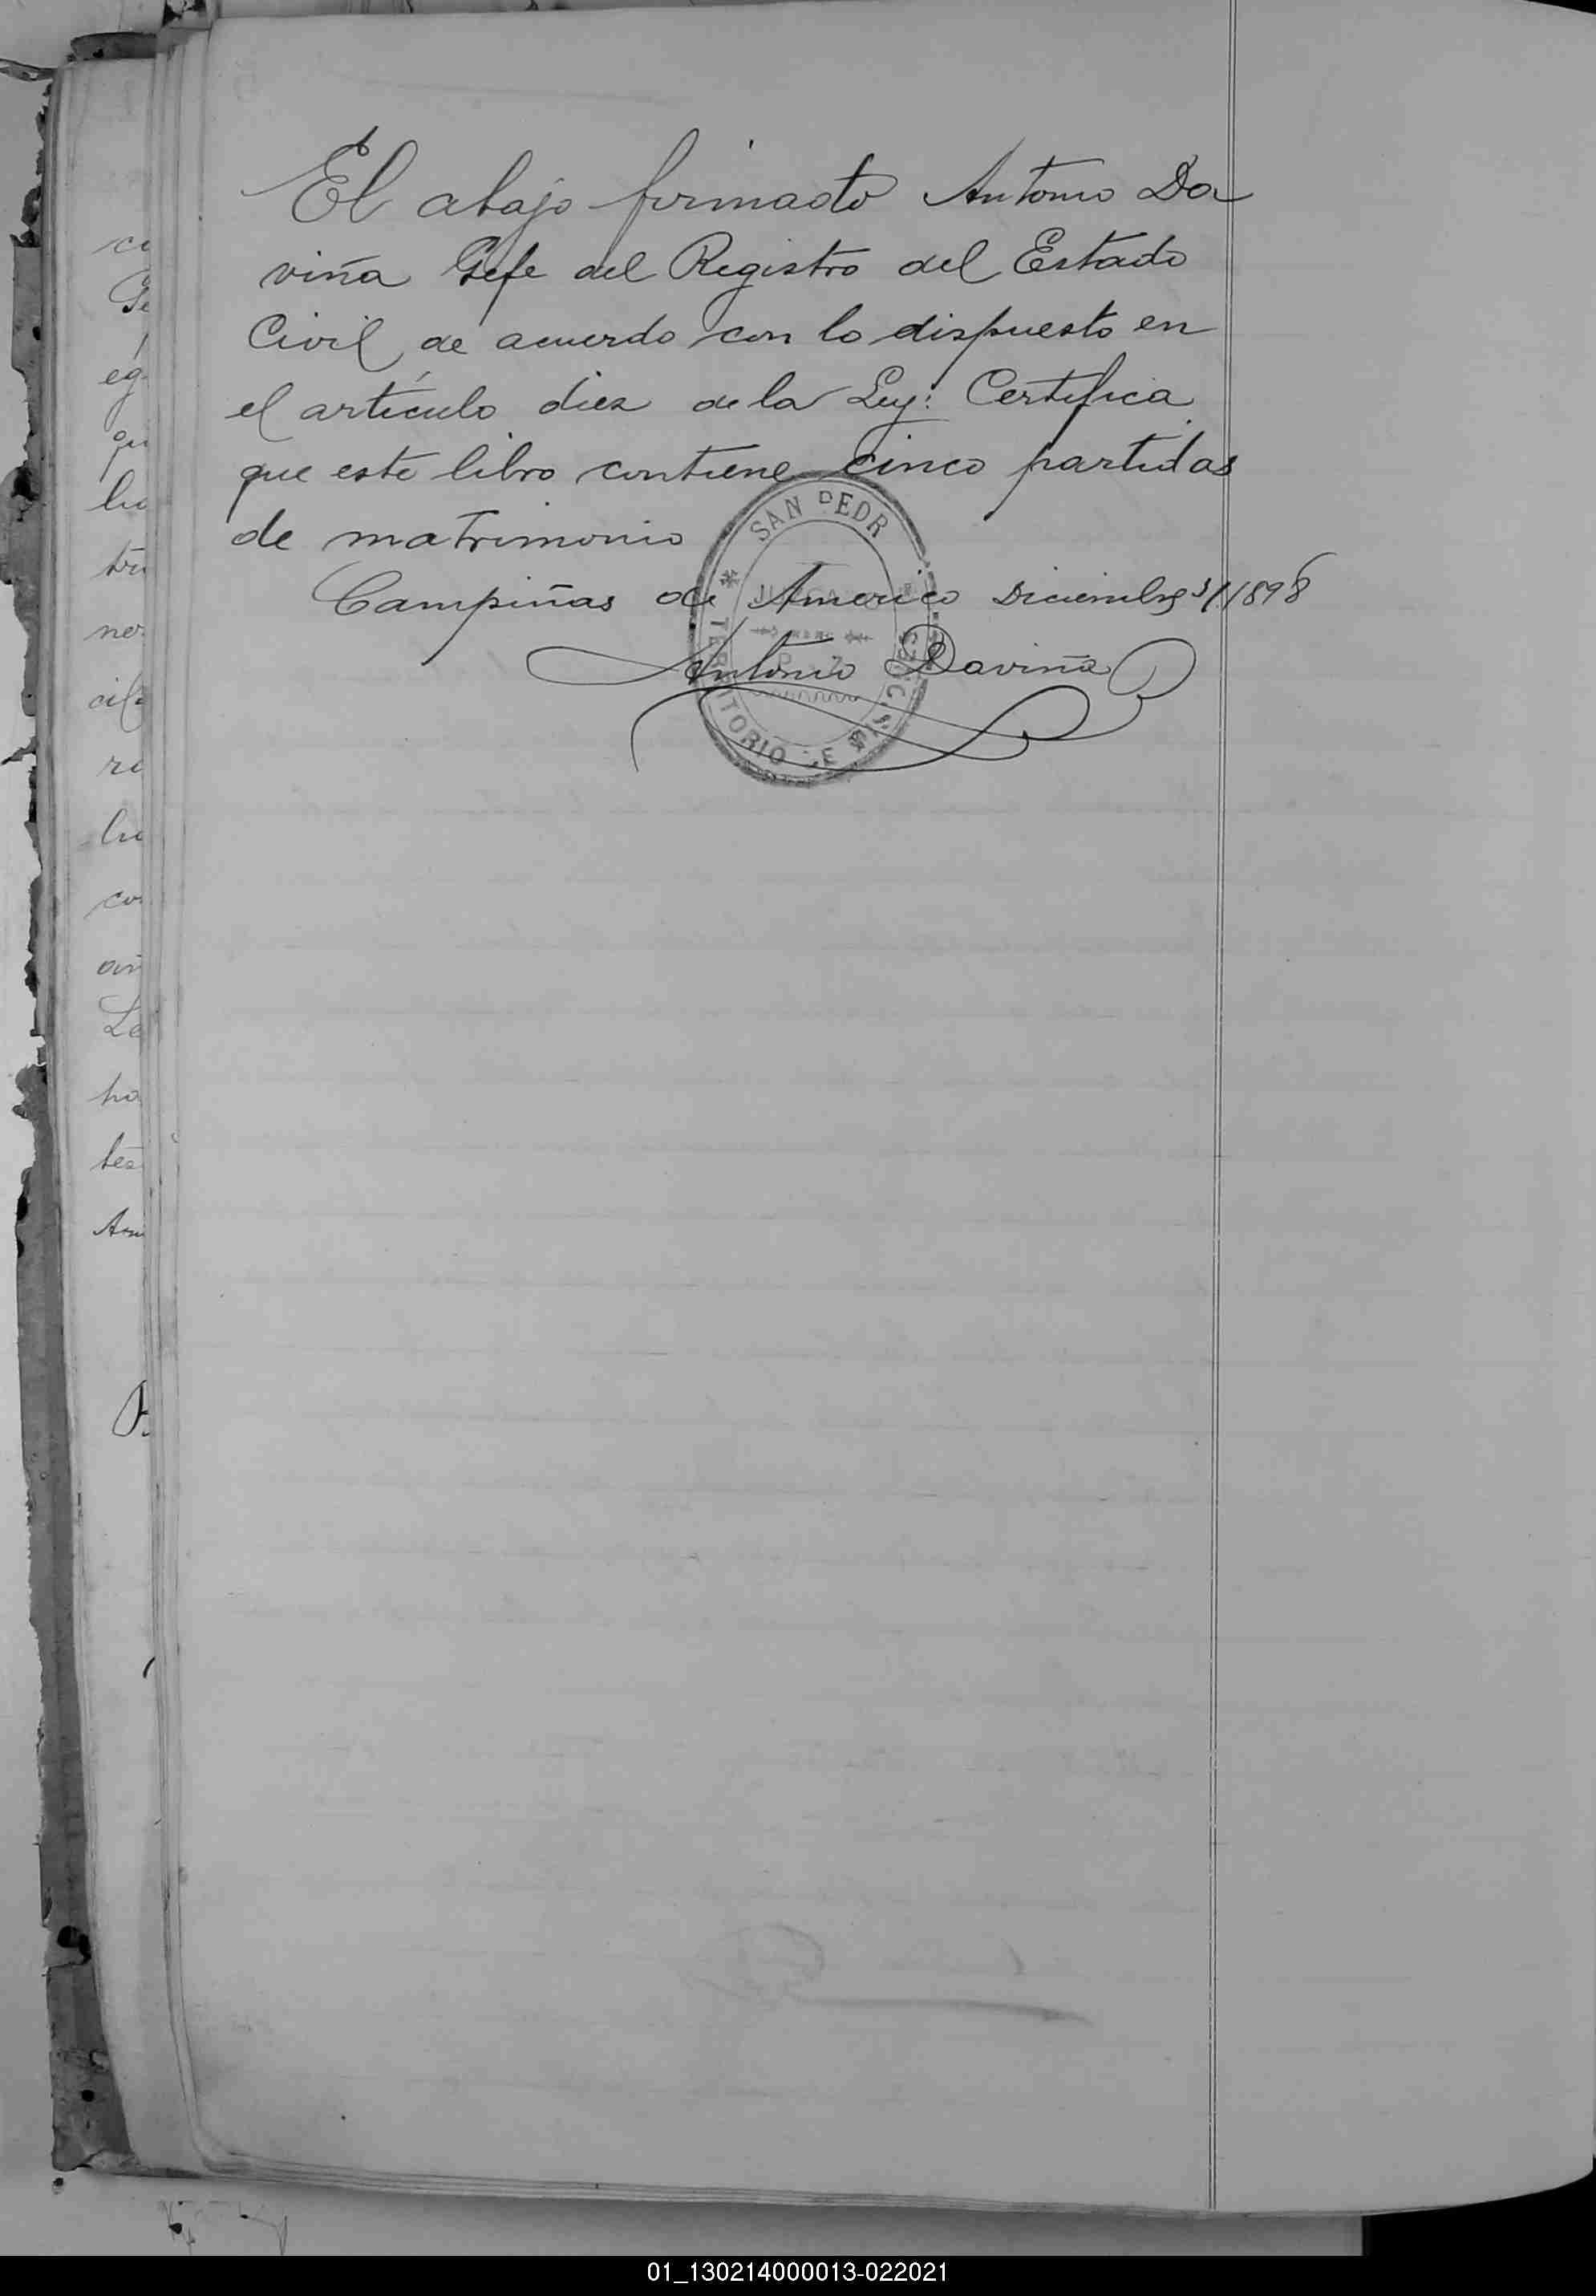 El abajo firmado Antonio Da
viña Gefe del Registro del Estado
Civil de acuerdo con lo dispuesto en
el artículo diez de la Ley: Certifica
que este libro contiene cinco partidas
de matrimonio
Campiñas de Americo Diciembre 31/1898
Antonio Daviña
SAN PEDR
TERRITORIO DE MIS
01_130214000013-022021